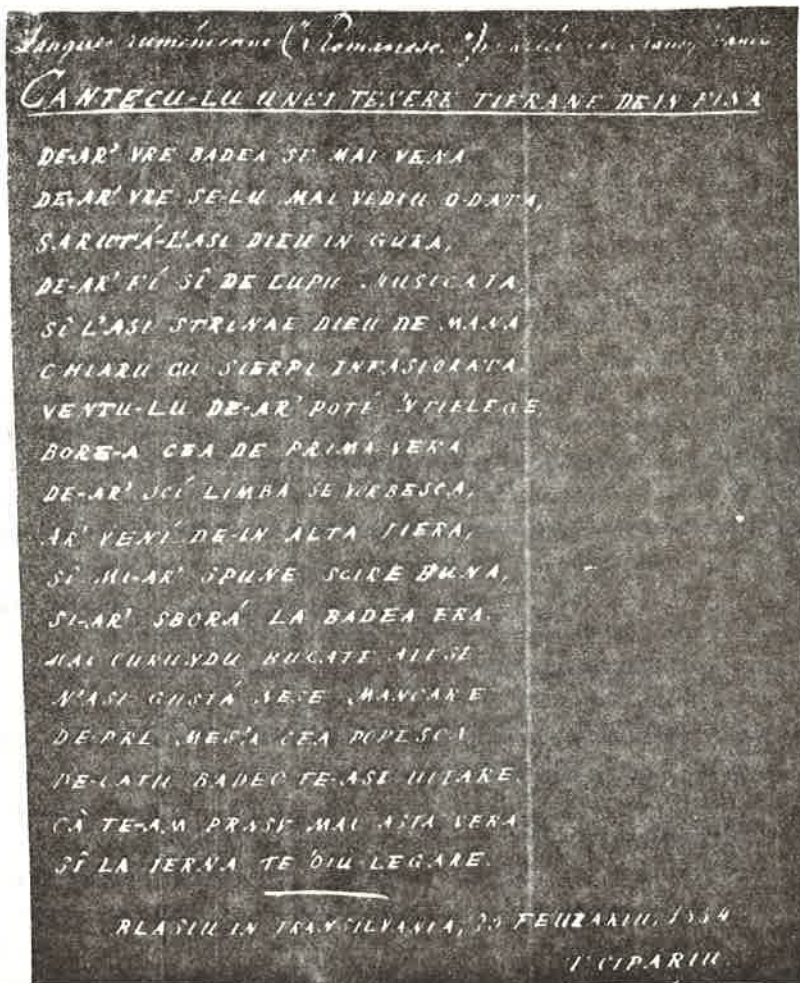 Langues ("Romanasc")
CANTECU-LU UNEI TENERE TIERANE DE IN FINA
DE-AR' VRE BADEA SE MAI VENA
DE-AR' VRE SE-LU MAI VEDIU O-DATA,
SARUTÁ-L'ASI DIEU IN GURA,
DE-AR' FÍ SÎ DE LUPU MUSICATA.
SÎ L'ASI STRINAE DIEU DE MANA
CHIARU CU SIERPI INFASIORATA.
VENTU-LU DE-AR' POTÉ 'NTIELEGE,
BORE-A CEA DE PRIMA VERA
DE-AR' SCÍ LIMBA SE VORBESCA,
AR' VENÍ DE-IN ALTA TIERA,
SÎ MI-AR' SPUNE SCIRE BUNA,
SI-AR' SBORÁ LA BADEA ERA.
MAI CURUNDU BUCATE ALESE
N'ASI GUSTÁ NESE MANCARE
DE PRE MES'A CEA POPESCA
DE-CATU BADEO TE-ASI UITARE.
CÂ TE-AM PRNSU MAI ASTA VERA
SÎ LA IERNA TE 'OIU LEGARE.
BLASIU IN TRANSILVANIA, FEURARIU,
T CIPARIU.